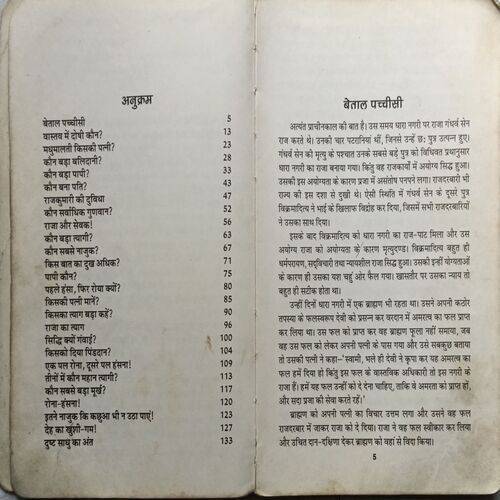 अनुक्रम
बेताल पच्चीसी 5
वास्तव में दोषी कौन? 13
मधुमालती किसकी पत्नी? 23
कौन बड़ा बलिदानी? 28
कौन बड़ा पापी? 33
कौन बना पति? 43
राजकुमारी की दुविधा 47
कौन सर्वाधिक गुणवान? 52
राजा और सेवक! 56
कौन बड़ा त्यागी? 63
कौन सबसे नाजुक? 67
किस बात का दुख अधिक? 71
पापी कौन? 75
पहले हंसा, फिर रोया क्यों? 80
किसकी पत्नी मानें? 85
किसका त्याग बड़ा कहें? 90
राजा का त्याग 96
सिद्धि क्यों गंवाई? 100
किसको दिया पिंडदान? 104
एक पल रोना, दूसरे पल हंसना! 109
तीनों में कौन महान त्यागी? 113
कौन सबसे बड़ा मूर्ख? 117
रोना-हंसना! 120
इतने नाजुक कि कछुआ भी न उठा पाएं! 123
देह का खुशी-गम! 127
दुष्ट साधु का अंत 133
बेताल पच्चीसी
अत्यंत प्राचीनकाल की बात है। उस समय धारा नगरी पर राजा गंधर्व सेन
राज करते थे। उनकी चार पटरानियां थीं, जिनसे उन्हें छ: पुत्र उत्पन्न हुए।
गंधर्व सेन की मृत्यु के पश्चात उनके सबसे बड़े पुत्र को विधिवत प्रथानुसार
धारा नगरी का राजा बनाया गया। किंतु वह राजकार्यों में अयोग्य सिद्ध हुआ।
उसकी इस अयोग्यता के कारण प्रजा में असंतोष पनपने लगा। राजदरबारी भी
राज्य की इस दशा से दुखी थे। ऐसी स्थिति में गंधर्व सेन के दूसरे पुत्र
विक्रमादित्य ने भाई के खिलाफ विद्रोह कर दिया, जिसमें सभी राजदरबारियों
ने उसका साथ दिया।
इसके बाद विक्रमादित्य को धारा नगरी का राज-पाट मिला और उस
अयोग्य राजा को अयोग्यता के कारण मृत्युदण्ड। विक्रमादित्य बहुत ही
धर्मपरायण, सद्विचारी तथा न्यायशील राजा सिद्ध हुआ। उसकी इन्हीं योग्यताओं
के कारण ही उसका यश चहुं ओर फैल गया। खासतौर पर उसका न्याय तो
बहुत ही सटीक होता था।
उन्हीं दिनों धारा नगरी में एक ब्राह्मण भी रहता था। उसने अपनी कठोर
तपस्या के फलस्वरूप देवी को प्रसन्न कर वरदान में अमरत्व का फल प्राप्त
कर लिया था। उस फल को प्राप्त कर वह ब्राह्मण फूला नहीं समाया, जब
वह उस फल को लेकर अपनी पत्नी के पास गया और उसे सबकुछ बताया
तो उसकी पत्नी ने कहा–'स्वामी, भले ही देवी ने कृपा कर यह अमरत्व का
फल हमें दिया हो किंतु इस फल के वास्तविक अधिकारी तो इस नगरी के
राजा हैं। हमें यह फल उन्हीं को दे देना चाहिए, ताकि वे अमरता को प्राप्त हों,
और सदा प्रजा की सेवा करते रहें।'
ब्राह्मण को अपनी पत्नी का विचार उत्तम लगा और उसने वह फल
राजदरबार में जाकर राजा को दे दिया। राजा ने वह फल स्वीकार कर लिया
और उचित दान-दक्षिणा देकर ब्राह्मण को वहां से विदा किया।
5